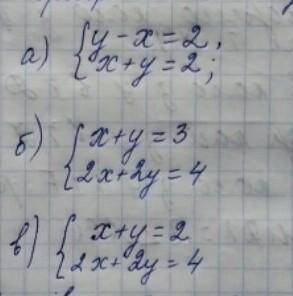 а) { y - x = 2,
x + y = 2;
б) { x + y = 3
2x + 2y = 4
в) { x + y = 2
2x + 2y = 4